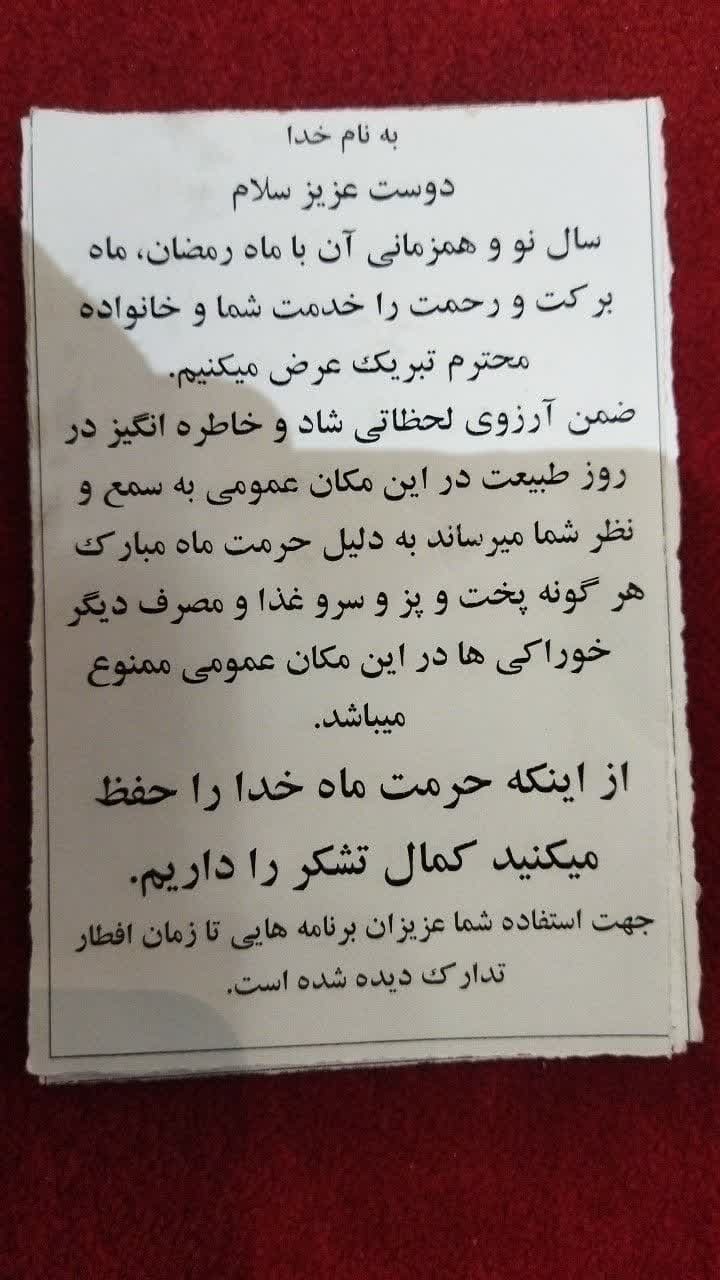 به نام خدا
دوست عزیز سلام
سال نو و همزمانی آن با ماه رمضان، ماه
برکت و رحمت را خدمت شما و خانواده
محترم تبریک عرض میکنیم.
ضمن آرزوی لحظاتی شاد و خاطره انگیز در
روز طبیعت در این مکان عمومی به سمع و
نظر شما میرساند به دلیل حرمت ماه مبارک
هر گونه پخت و پز و سرو غذا و مصرف دیگر
خوراکی ها در این مکان عمومی ممنوع
میباشد.
از اینکه حرمت ماه خدا را حفظ
میکنید کمال تشکر را داریم.
جهت استفاده شما عزیزان برنامه هایی تا زمان افطار
تدارک دیده شده است.